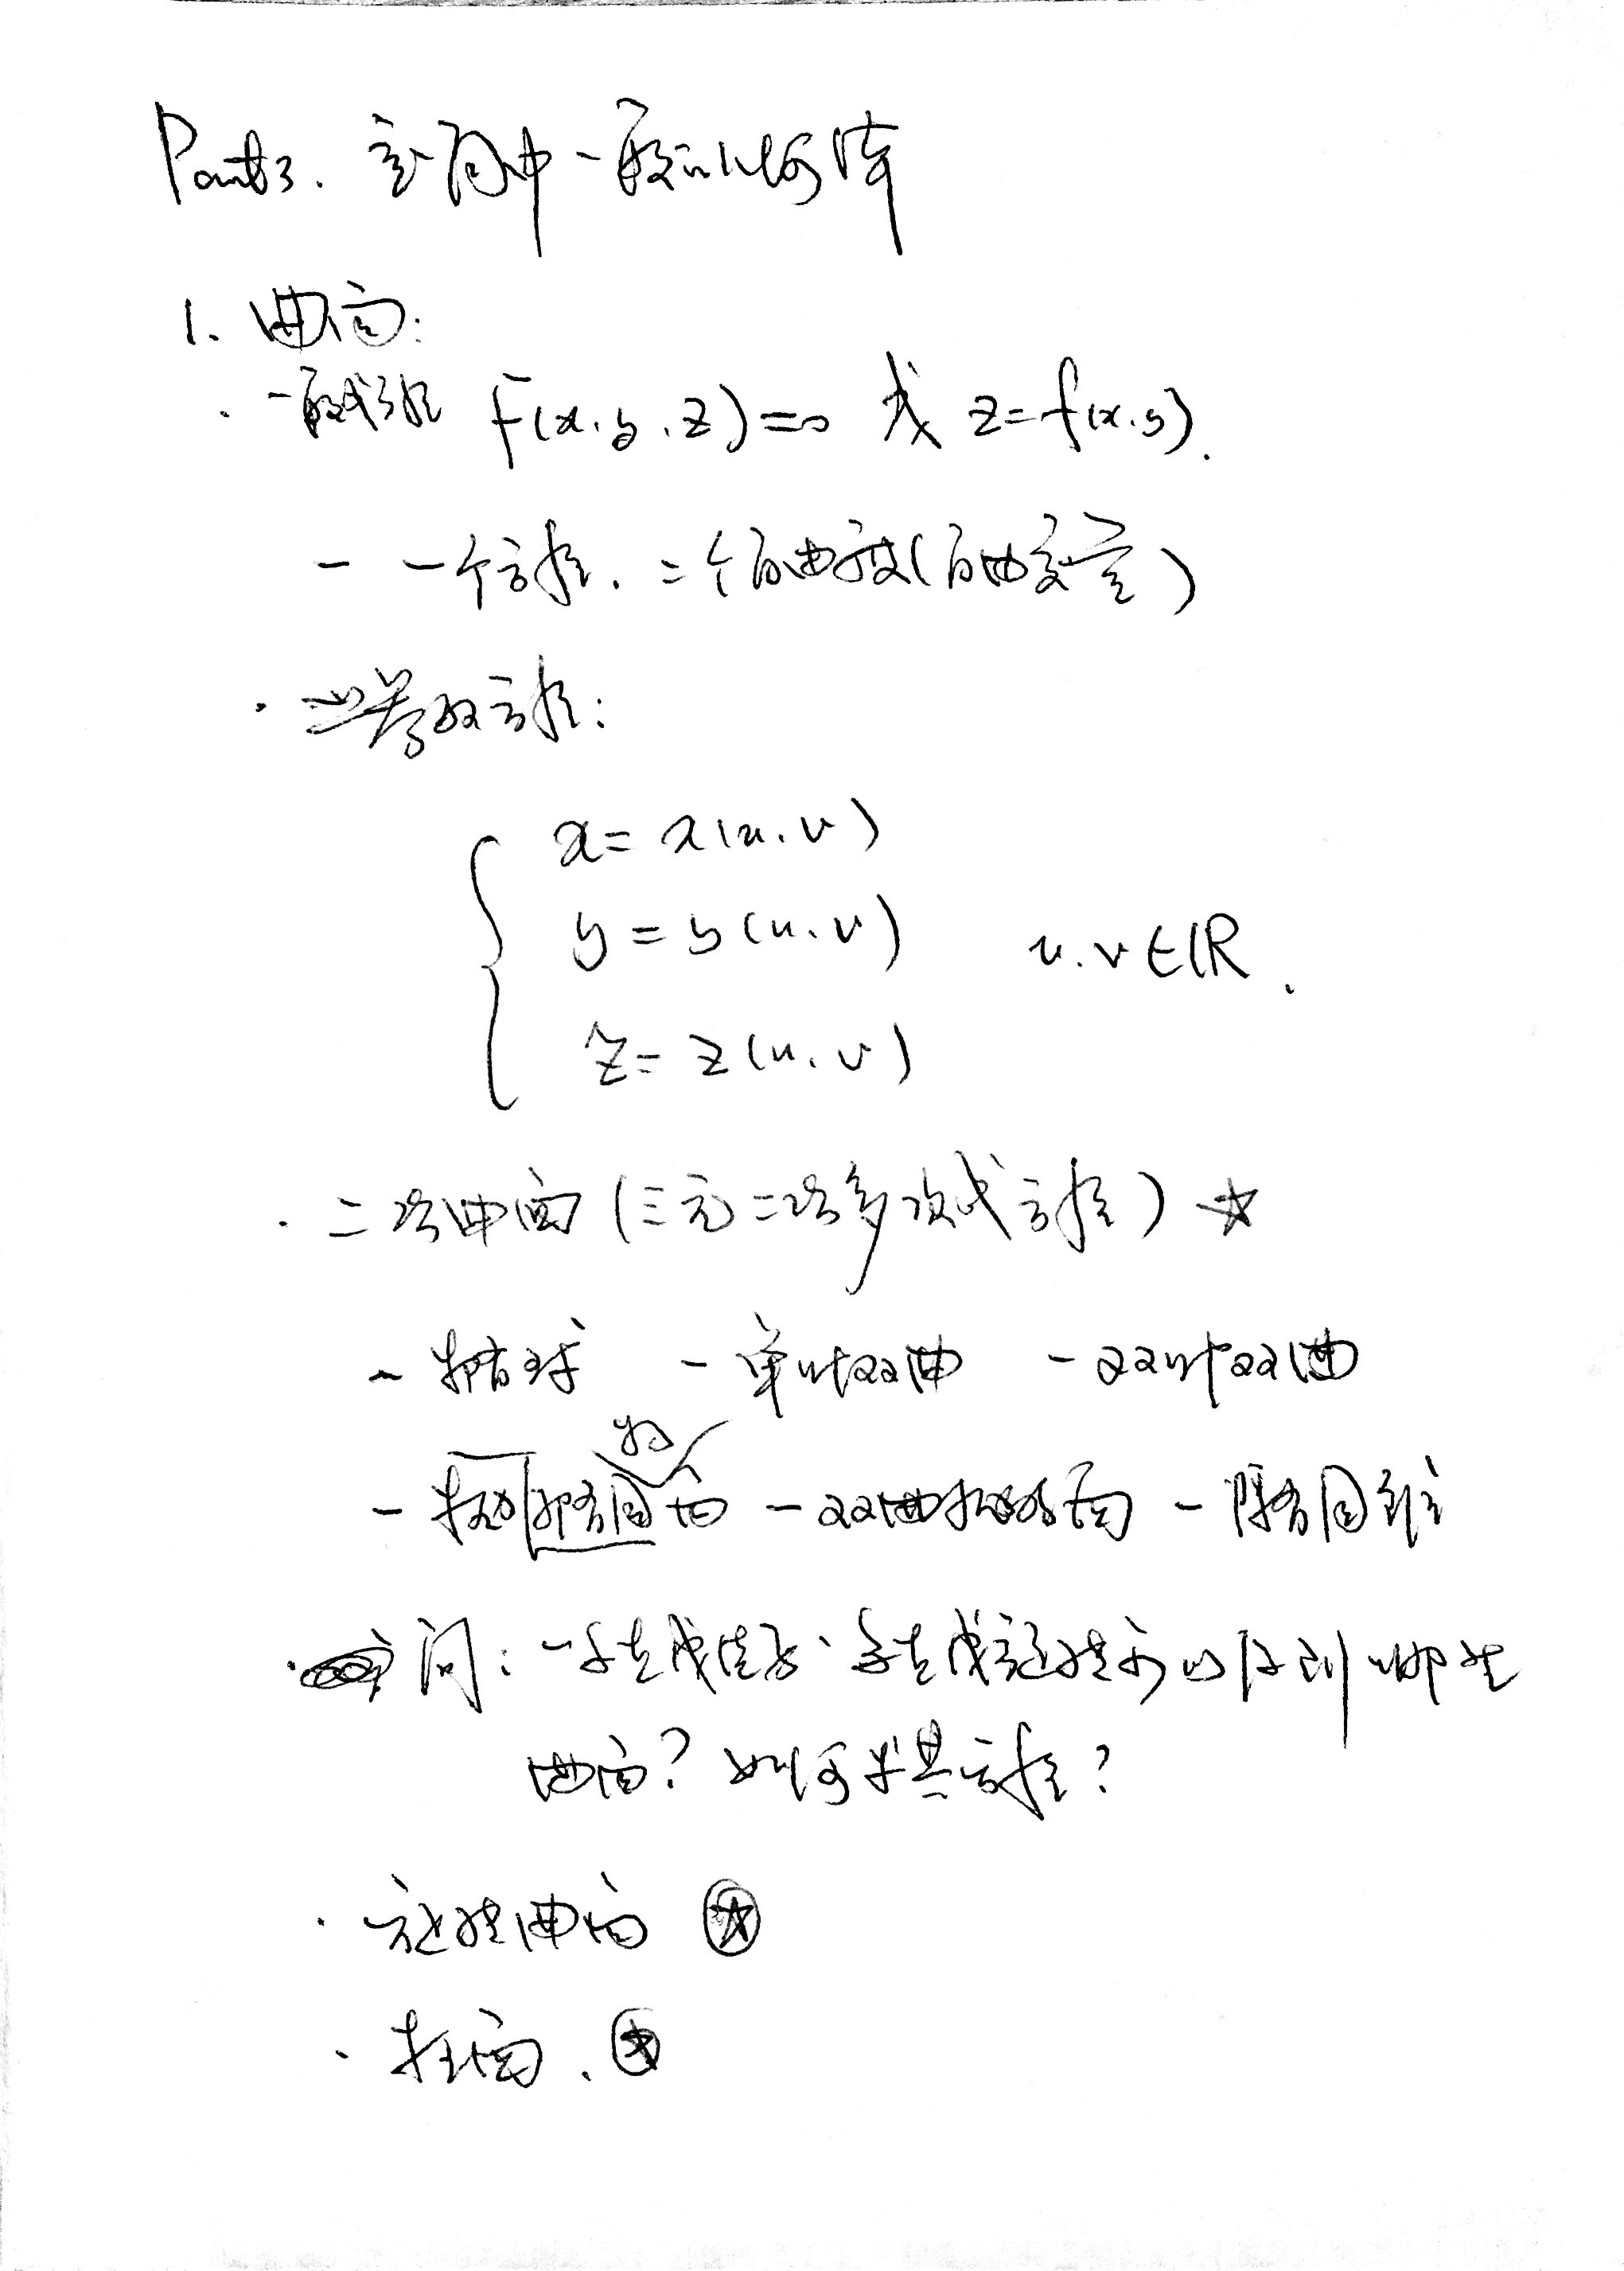 Part3. 空间中一般的几何体
1. 曲面:
· 一般式方程 F(x, y, z)=0 或 z=f(x, y).
- 一个方程. 二个自由度(自由变量)
· 参数方程:
x = x(u, v)
y = y(u, v)    u, v ∈ ℝ.
z = z(u, v)
· 二次曲面 (三元二次多项式方程) ☆
- 椭球 - 单叶双曲 - 双叶双曲
- 抛物椭圆面 - 双曲抛物面 - 椭圆锥
· 问: 一条直线绕另一条直线旋转可以得到哪些
曲面? 如何求其方程?
· 旋转曲面 ☆
· 柱面. ☆